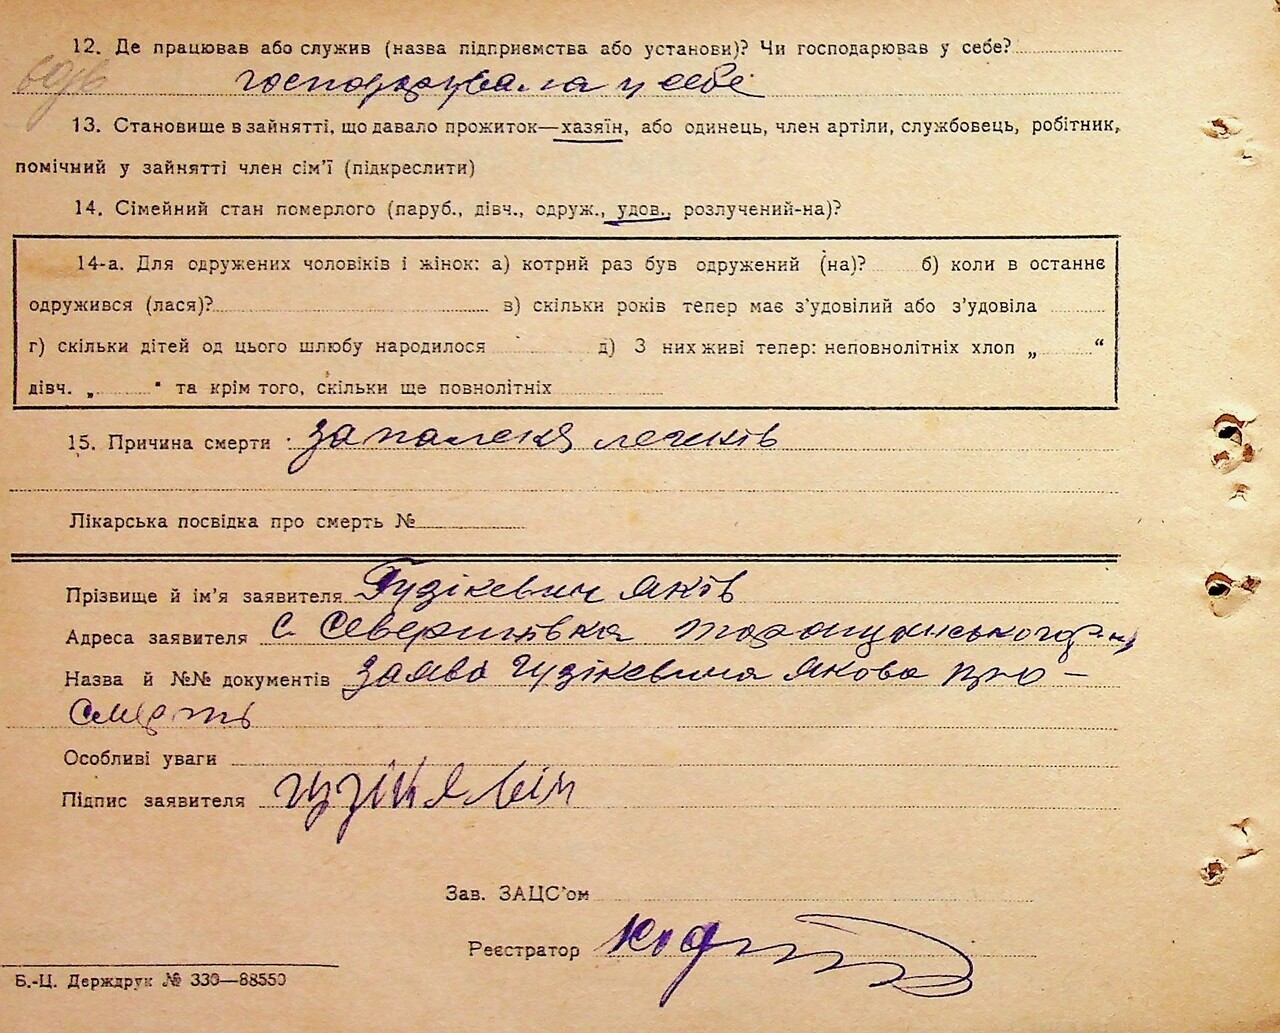 12. Де працював або служив (назва підприємства або установи)? Чи господарював у себе?
господарувала у себе
13. Становище в зайнятті, що давало прожиток—хазяїн, або одинець, член артіли, службовець, робітник,
помічний у зайнятті член сім’ї (підкреслити)
14. Сімейний стан померлого (паруб., дівч., одруж., удов., розлучений-на)?
14-а. Для одружених чоловіків і жінок: а) котрий раз був одружений (на)? б) коли в останнє
одружився (лася)? в) скільки років тепер має з’удовілий або з’удовіла
г) скільки дітей од цього шлюбу народилося д) З них живі тепер: неповнолітніх хлоп „ “
дівч. „ " та крім того, скільки ще повнолітніх
15. Причина смерти запаленя легків
Лікарська посвідка про смерть №
Прізвище й ім’я заявителя Гузікевич Яків
Адреса заявителя с. Северинівка Таращанського
Назва й №№ документів заява Гузікевича Якова про
смерть
Особливі уваги
Підпис заявителя гузікявіч
Зав. ЗАЦС’ом
Реєстратор
Б.-Ц. Держдрук № 330—88550